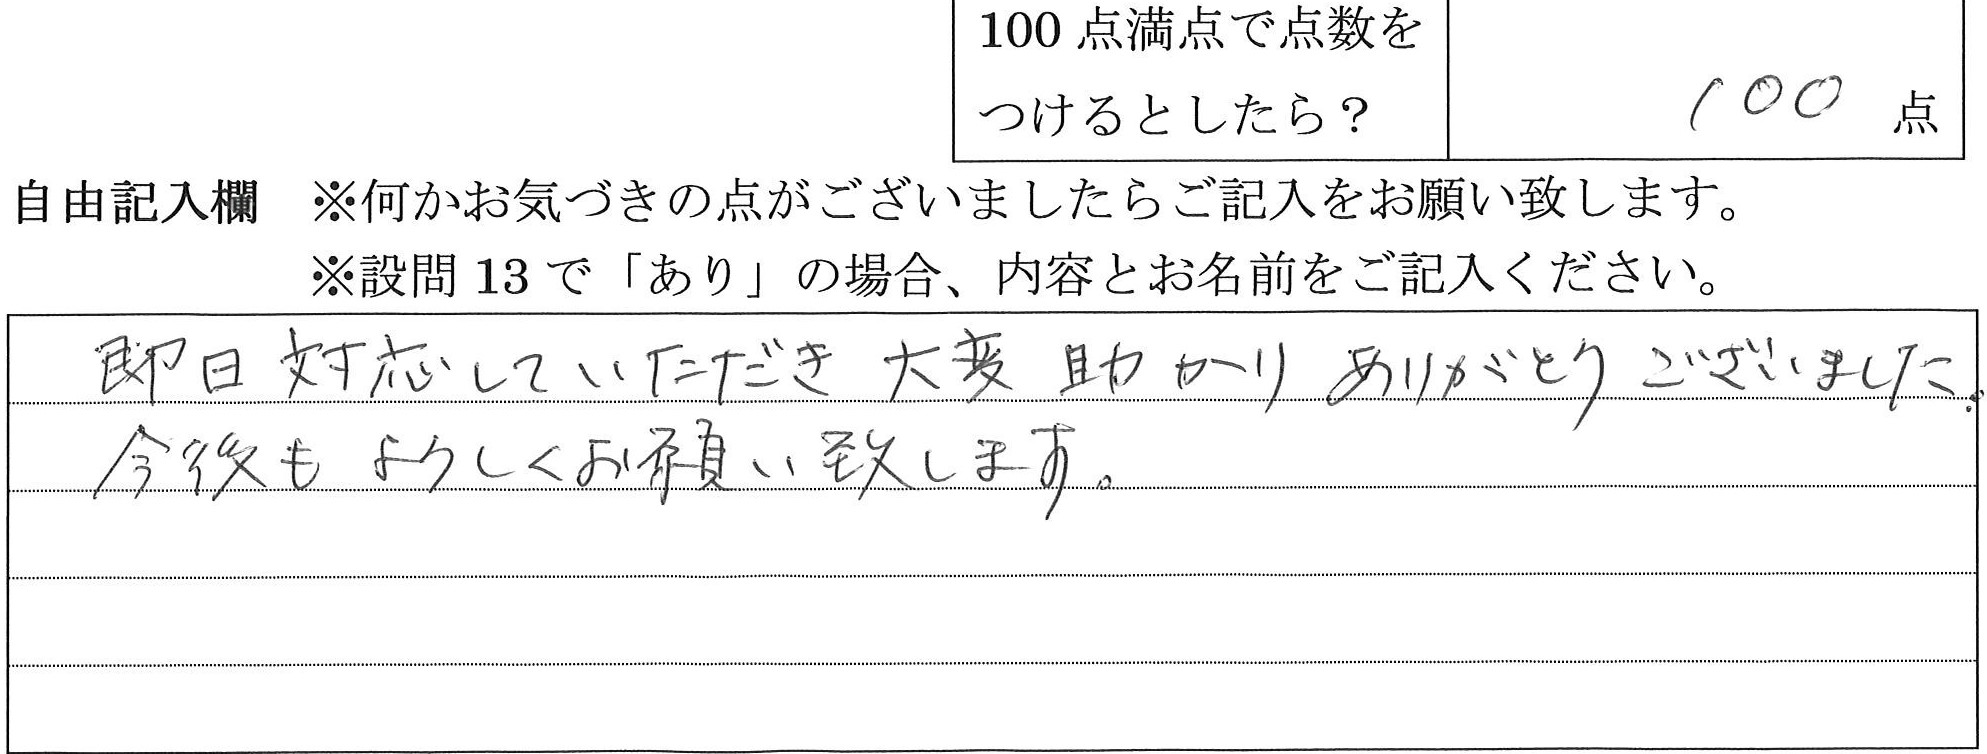 100 点満点で点数を
つけるとしたら？
100 点
自由記入欄 ※何かお気づきの点がございましたらご記入をお願い致します。
※設問 13 で「あり」の場合、内容とお名前をご記入ください。
即日対応していただき大変助かりありがとうございました。
今後もよろしくお願い致します。